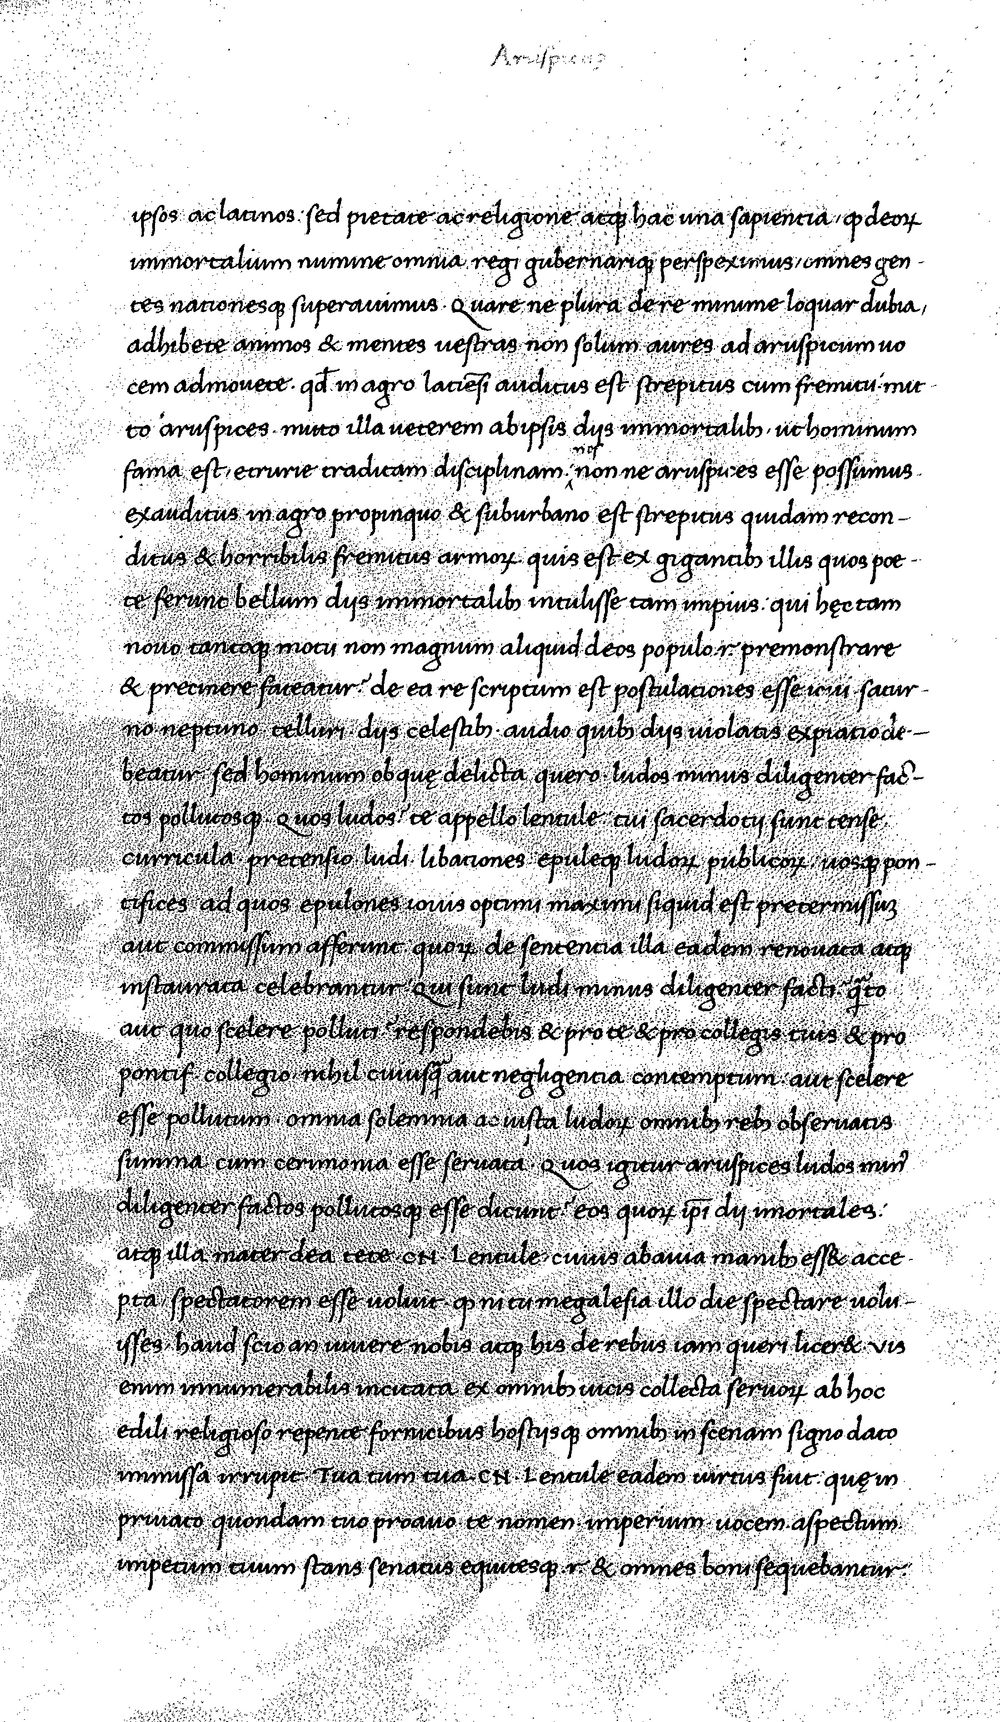 Aruspicus
ipsos ac latinos: sed pietate ac religione atqꝫ hac una sapientia, ꝙ deoꝝ
immortalium numine omnia regi gubernariqꝫ perspeximus, omnes gen-
tes nationesqꝫ superauimus. Quare ne plura de re minime loquar dubia,
adhibete animos & mentes uestras non solum aures ad aruspicum uo
cem admouete. qđ in agro latiēsi auditus est strepitus cum fremitu: mit
to aruspices. mitto illa ueterem ab ipsis dijs immortalibꝫ, ut hominum
fama est, etrurie traditam disciplinam: nos non ne aruspices esse possumus.
exauditus in agro propinquo & suburbano est strepitus quidam recon-
ditus & horribilis fremitus armoꝝ. quis est ex gigantibꝫ illis quos poe-
te ferunt bellum dijs immortalibꝫ intulisse tam impius: qui hęc tam
nouo tantoqꝫ motu non magnum aliquid deos populo .r. premonstrare
& precinere fateatur? de ea re scriptum est postulationes esse ioui satur-
no neptuno telluri dijs celestibꝫ. audio quibꝫ dijs uiolatis expiatio de-
beatur. sed hominum ob quę delicta quero. ludos minus diligenter fac̄-
tos pollutosqꝫ. Quos ludos? te appello lentule. tui sacerdotij sunt tense,
curricula. precensio ludi. libationes epuleqꝫ ludoꝝ publicoꝝ, uosqꝫ pon-
tifices ad quos epulones iouis optimi maximi siquid est pretermissuꝫ
aut commissum afferunt. quoꝝ de sententia illa eadem renouata atqꝫ
instaurata celebrantur. Qui sunt ludi minus diligenter facti. q̄to
aut quo scelere polluti? respondebis & pro te & pro collegis tuis & pro
pontif. collegio. nihil cuiusq̄ aut negligentia contemptum: aut scelere
esse pollutum. omnia solemnia ac iusta ludoꝝ omnibꝫ rebꝫ obseruatis
summa cum cerimonia esse seruata. Quos igitur aruspices ludos min᾿
diligenter factos pollutosqꝫ esse dicunt? eos quoꝝ ip̄i dij imortales:
atqꝫ illa mater dea tete CN. Lentule. cuius abauia manibꝫ ess& acce-
pta, spectatorem esse uoluit. ꝙ ni tu megalesia illo die spectare uolu-
isses. haud scio an uiuere nobis atqꝫ his de rebus iam queri licer&. vis
enim innumerabilis incitata ex omnibꝫ uicis collecta seruoꝝ ab hoc
edili religioso repente fornicibus hostijsqꝫ omnibꝫ in scenam signo dato
immissa irrupit. Tua tum tua CN. Lentule eadem uirtus fuit. quę in
priuato quondam tuo proauo. te nomen. imperium uocem. aspectum.
impetum tuum stans senatus equitesqꝫ .r. & omnes boni sequebantur: